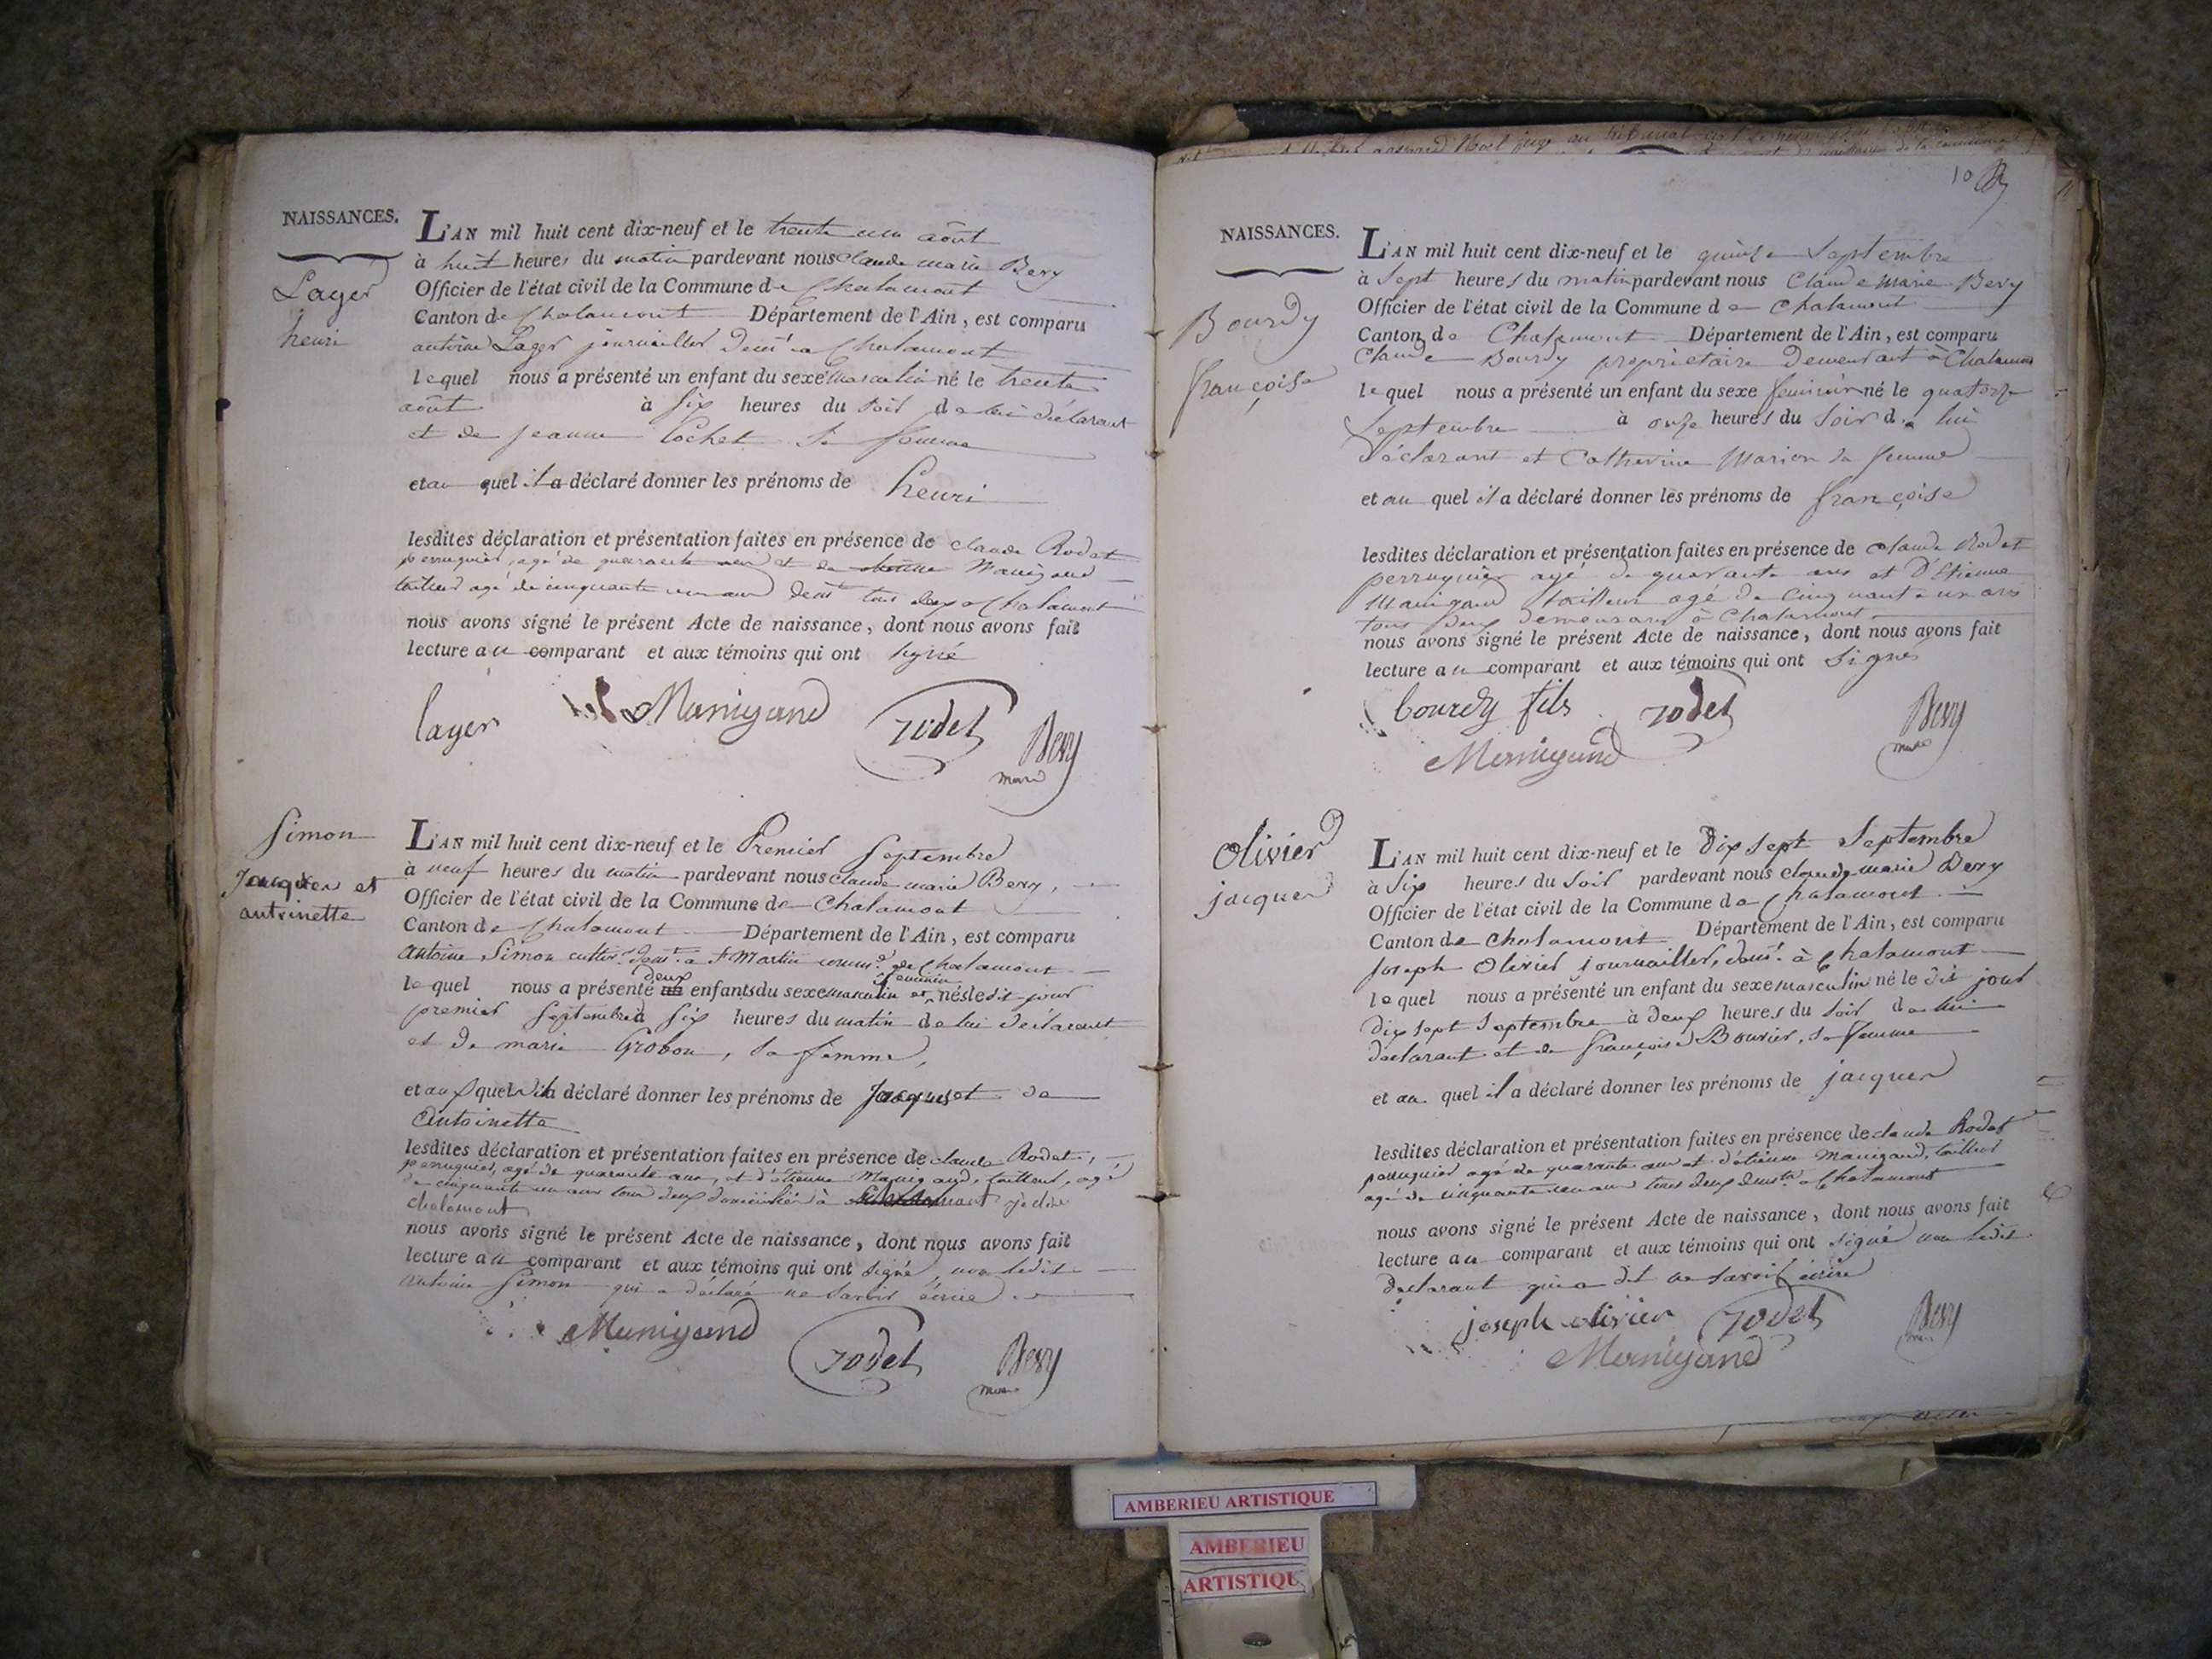 NAISSANCES.
Lager
henri
L'AN mil huit cent dix-neuf et le trente un août
à huit heures du matin pardevant nous claude marie Bevy
Officier de l'état civil de la Commune de Chalamont
Canton de Chalamont Département de l'Ain, est comparu
antoine Lager journailler demt a Chalamont
lequel nous a présenté un enfant du sexe masculin né le trente
août à six heures du soir de lui déclarant
et de jeanne Cochet sa femme
et au quel il a déclaré donner les prénoms de henri
lesdites déclaration et présentation faites en présence de claude Rodet
perruquier, agé de quarante ans et de etienne Manigand
tailleur agé de cinquante un ans demt tous deux a Chalamont
nous avons signé le présent Acte de naissance, dont nous avons fait
lecture au comparant et aux témoins qui ont signé
lager Manigand rodet Bevy
maire
Simon
Jacques et
antoinette
L'AN mil huit cent dix-neuf et le Premier Septembre
à neuf heures du matin pardevant nous claude marie Bevy,
Officier de l'état civil de la Commune de Chalamont
Canton de Chalamont Département de l'Ain, est comparu
Antoine Simon cultivr demt a St Martin comme de Chalamont
lequel nous a présenté deux enfants du sexe masculin et féminin nés ledit jour
premier Septembre à six heures du matin de lui déclarant
et de marie Grobon, sa femme,
et aux quels il a déclaré donner les prénoms de Jacques et de
Antoinette
lesdites déclaration et présentation faites en présence de claude Rodet,
perruquier, agé de quarante ans, et d'étienne Manigand, tailleur, agé
de cinquante un ans tous deux domiciliés à je dis
chalamont
nous avons signé le présent Acte de naissance, dont nous avons fait
lecture au comparant et aux témoins qui ont signé, non ledit
antoine Simon qui a déclaré ne savoir écrire
Manigand rodet Bevy
maire
10
NAISSANCES.
Bourdy
françoise
L'AN mil huit cent dix-neuf et le quinze Septembre
à Sept heures du matin pardevant nous Claude Marie Bevy
Officier de l'état civil de la Commune de Chalamont
Canton de Chalamont Département de l'Ain, est comparu
Claude Bourdy propriétaire demeurant à Chalamont
lequel nous a présenté un enfant du sexe féminin né le quatorze
Septembre à onze heures du Soir de lui
déclarant et Catherine Marion sa femme
et au quel il a déclaré donner les prénoms de françoise
lesdites déclaration et présentation faites en présence de claude Rodet
perruquier agé de quarante ans et D'Etienne
Manigand tailleur agé de Cinquante un ans
tous deux demeurans à Chalamont
nous avons signé le présent Acte de naissance, dont nous avons fait
lecture au comparant et aux témoins qui ont Signés
bourdy fils rodet Bevy
Manigand maire
Olivier
jacques
L'AN mil huit cent dix-neuf et le dix sept Septembre
à Six heures du Soir pardevant nous claude marie Bevy
Officier de l'état civil de la Commune de Chalamont
Canton de Chalamont Département de l'Ain, est comparu
Joseph Olivier journailler, demt à Chalamont
lequel nous a présenté un enfant du sexe masculin né le dit jour
dix sept Septembre à deux heures du Soir de lui
déclarant et de françoise Bouvier, sa femme
et au quel il a déclaré donner les prénoms de jacques
lesdites déclaration et présentation faites en présence de claude Rodet
perruquier agé de quarante ans et d'étienne Manigand, tailleur
agé de cinquante un ans tous deux demts a Chalamont
nous avons signé le présent Acte de naissance, dont nous avons fait
lecture au comparant et aux témoins qui ont signé non ledit
déclarant qui a dit ne savoir écrire
joseph olivier rodet Bevy
Manigand maire
AMBERIEU ARTISTIQUE
AMBERIEU
ARTISTIQU